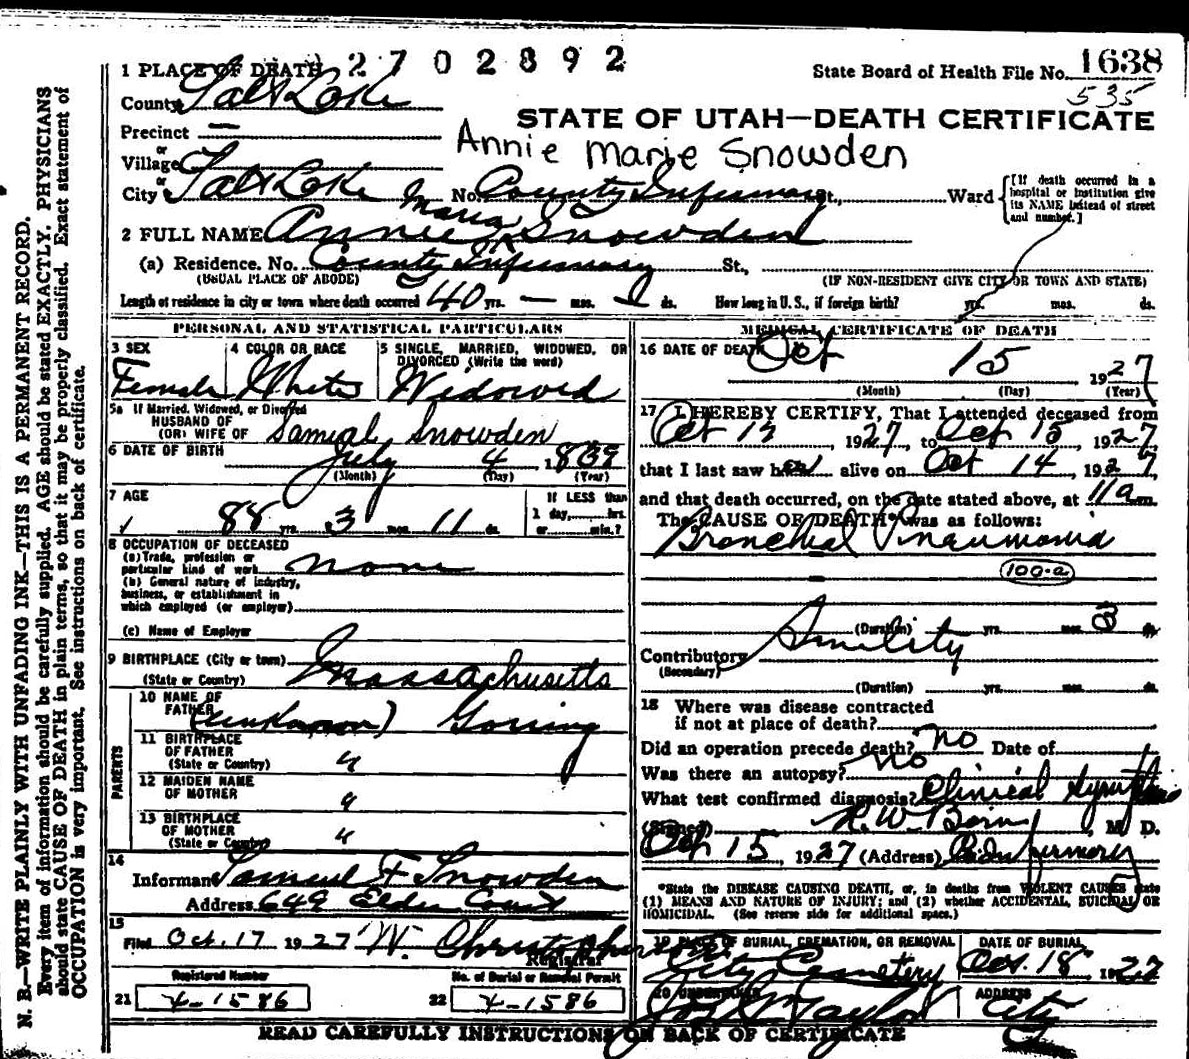 2702892
1 PLACE OF DEATH
State Board of Health File No. 1638
535
County Salt Lake
STATE OF UTAH—DEATH CERTIFICATE
Precinct —
or
Annie Marie Snowden
Village
or
City Salt Lake No. County Infirmary St., Ward
[If death occurred in a
hospital or institution give
its NAME instead of street
and number.]
Maria
2 FULL NAME Annie ^ Snowden
(a) Residence. No. County Infirmary St.,
(USUAL PLACE OF ABODE) (IF NON-RESIDENT GIVE CITY OR TOWN AND STATE)
Length of residence in city or town where death occurred 40 yrs. — mos. ds. How long in U.S., if foreign birth? yrs. mos. ds.
PERSONAL AND STATISTICAL PARTICULARS
3 SEX
Female
4 COLOR OR RACE
White
5 SINGLE, MARRIED, WIDOWED, OR
DIVORCED (Write the word)
Widowed
5a If Married, Widowed, or Divorced
HUSBAND OF
(OR) WIFE OF Samual Snowden
6 DATE OF BIRTH July 4 1839
(Month) (Day) (Year)
7 AGE
88 yrs. 3 mos. 11 ds.
If LESS than
1 day, hrs.
or min.?
8 OCCUPATION OF DECEASED
(a) Trade, profession or
particular kind of work none
(b) General nature of industry,
business, or establishment in
which employed (or employer)
(c) Name of Employer
9 BIRTHPLACE (City or town)
(State or Country) Massachusetts
PARENTS
10 NAME OF
FATHER (unknown) Goring
11 BIRTHPLACE
OF FATHER
(State or Country) "
12 MAIDEN NAME
OF MOTHER "
13 BIRTHPLACE
OF MOTHER
(State or Country) "
14
Informant Samuel F Snowden
Address 649 Elder Court
15
Filed Oct. 17 1927 W. Christopherson
Registrar
Registered Number No. of Burial or Removal Permit
21 X-1586 22 X-1586
MEDICAL CERTIFICATE OF DEATH
16 DATE OF DEATH Oct 15 1927
(Month) (Day) (Year)
17 I HEREBY CERTIFY, That I attended deceased from
Oct 1927, to Oct 15, 1927,
that I last saw her alive on Oct 14, 1927,
and that death occurred, on the date stated above, at 11 a m.
The CAUSE OF DEATH* was as follows:
Bronchial Pneumonia
100-a
(Duration) yrs. mos. 3 ds.
Contributory Senility
(Secondary)
(Duration) yrs. mos. ds.
18 Where was disease contracted
if not at place of death?
Did an operation precede death? no Date of
Was there an autopsy? No
What test confirmed diagnosis? Clinical Symptoms
(Signed) R.W. , M. D.
Oct 15, 1927 (Address) Co. Infirmary
*State the DISEASE CAUSING DEATH, or, in deaths from VIOLENT CAUSES state
(1) MEANS AND NATURE OF INJURY; and (2) whether ACCIDENTAL, SUICIDAL OR
HOMICIDAL. (See reverse side for additional space.)
19 PLACE OF BURIAL, CREMATION, OR REMOVAL
City Cemetery
DATE OF BURIAL
Oct. 18 1927
20 UNDERTAKER
Jos. Wm Taylor
ADDRESS
City
READ CAREFULLY INSTRUCTIONS ON BACK OF CERTIFICATE
N. B.—WRITE PLAINLY WITH UNFADING INK—THIS IS A PERMANENT RECORD.
Every item of information should be carefully supplied. AGE should be stated EXACTLY. PHYSICIANS
should state CAUSE OF DEATH in plain terms, so that it may be properly classified. Exact statement of
OCCUPATION is very important. See instructions on back of certificate.